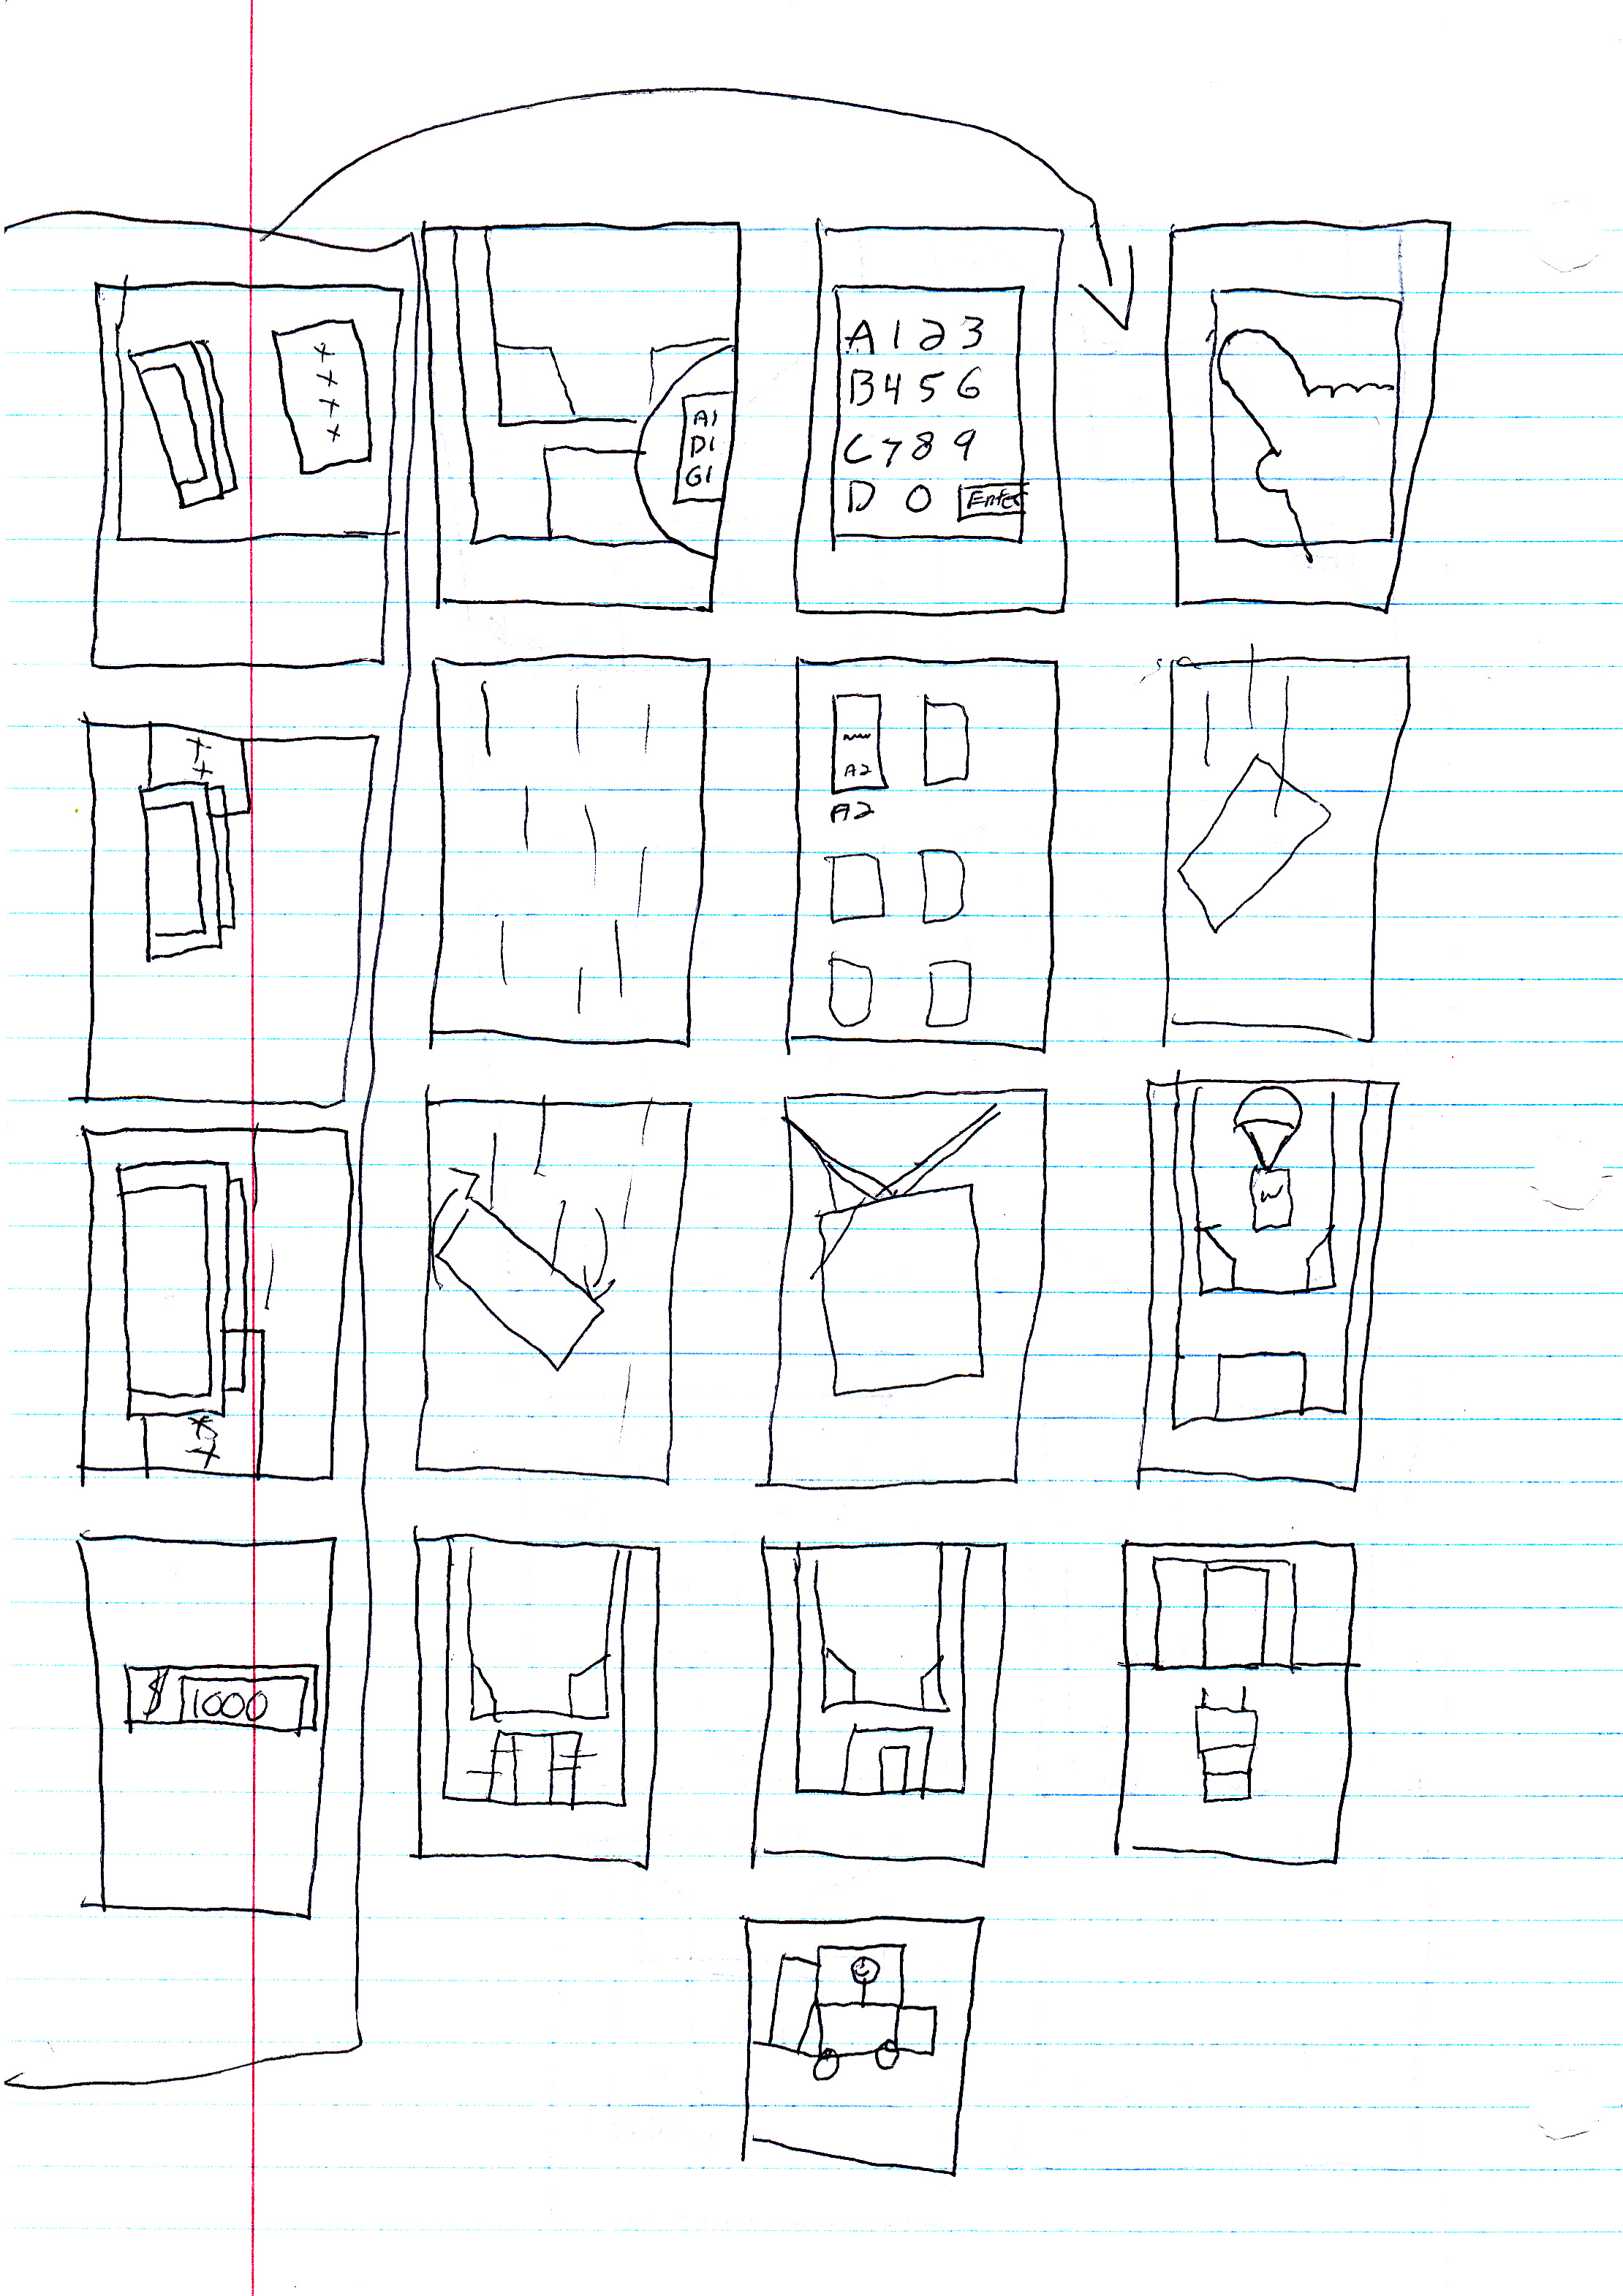 A1
D1
G1
A 1 2 3
B 4 5 6
C 7 8 9
D 0 Enter
A2
A2
W
$ 1000